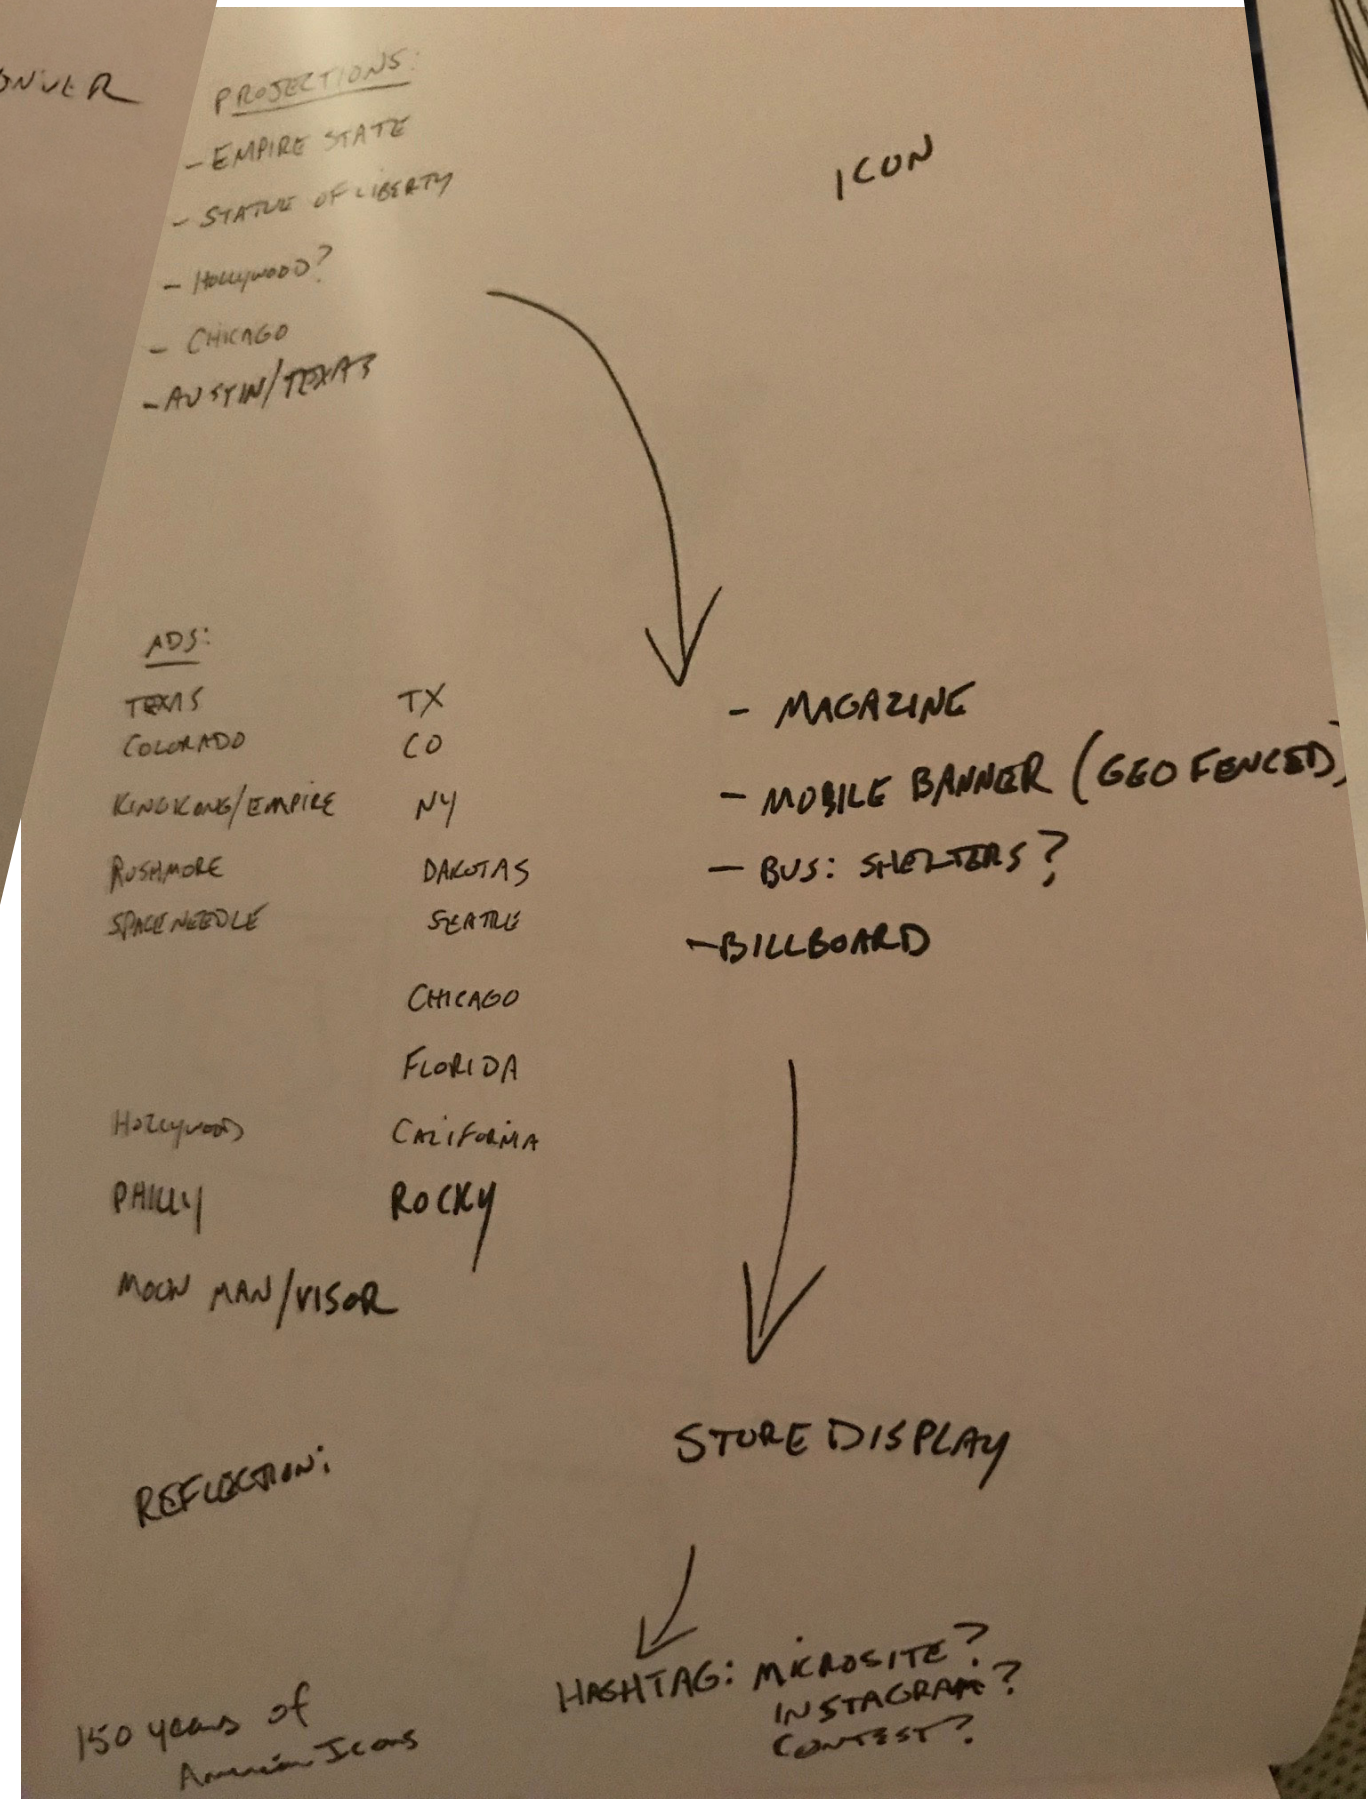 PROJECTIONS:
- EMPIRE STATE
- STATUE OF LIBERTY
- HOLLYWOOD?
- CHICAGO
- AUSTIN/TEXAS
ICON
ADS:
TEXAS TX
COLORADO CO
KINGKONG/EMPIRE NY
RUSHMORE DAKOTAS
SPACE NEEDLE SEATTLE
CHICAGO
FLORIDA
HOLLYWOOD CALIFORNIA
PHILLY ROCKY
MOON MAN/VISOR
- MAGAZINE
- MOBILE BANNER (GEO FENCED)
- BUS: SHELTERS?
- BILLBOARD
STORE DISPLAY
REFLECTION:
HASHTAG: MICROSITE?
INSTAGRAM?
CONTEST?
150 years of
American Icons